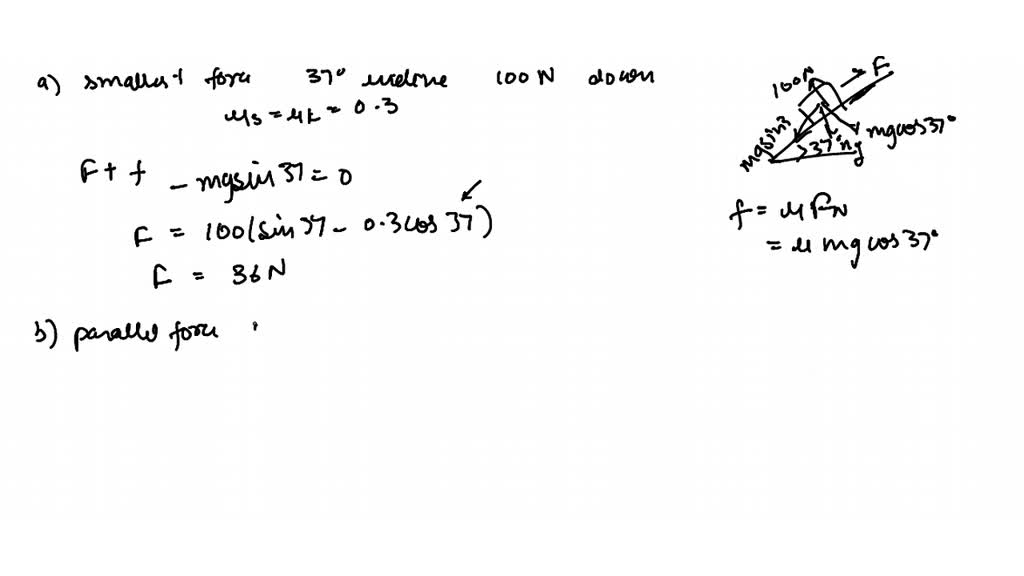 a) smallest force 37° incline 100N down
μs = μk = 0.3
F + f - mgsin37 = 0
F = 100(sin37 - 0.3cos37)
F = 36N
b) parallel force
100N
F
mgsin3
mgcos37°
37°
mg
f = μFN
= μmgcos37°